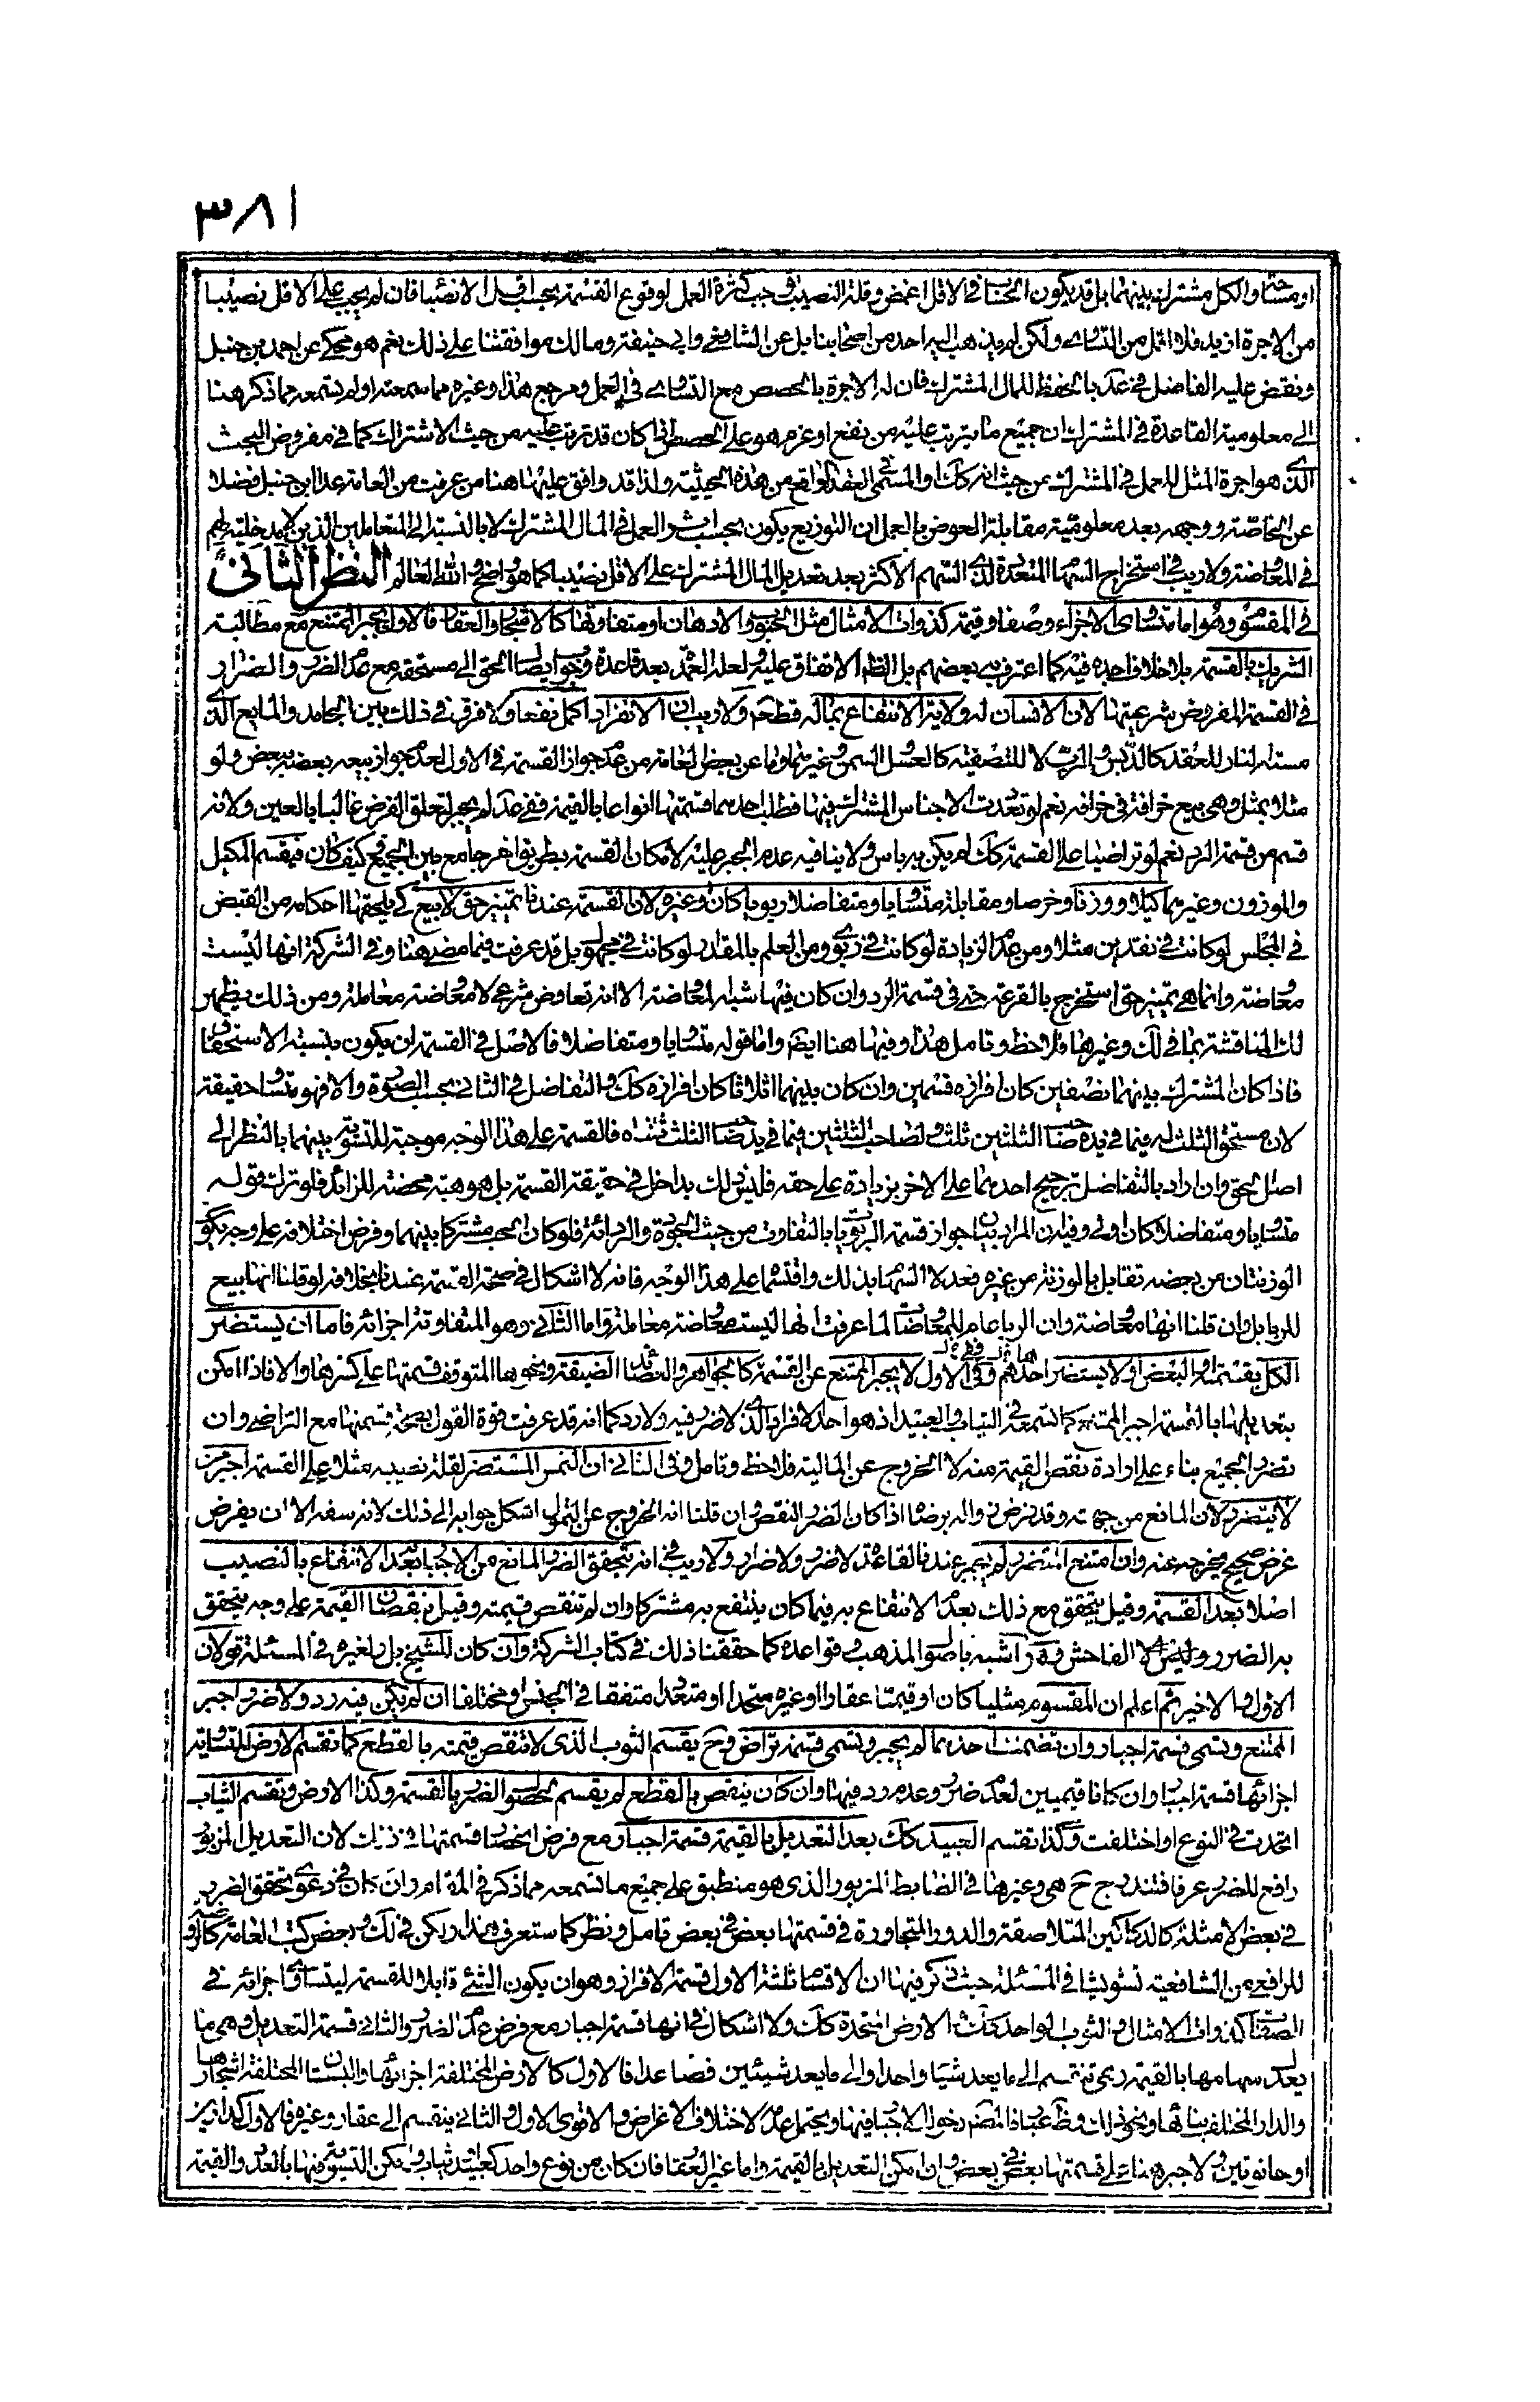 ٣٨١
او مساحتها والكل مشترك بينهما بل قد يكون الحساب في الاقل اغمض وقلة النصيب توجب كثرة العمل لوقوع القسمة بحسب اقل الانصباء فان لم يجب على الاقل نصيبا
من الاجرة ازيد فلا اقل من التساوى ولكن لم يذهب اليه احد من اصحابنا بل عن الشافعي وابي حنيفة ومالك موافقتنا على ذلك نعم هو محكي عن احمد بن حنبل
ونقض عليه الفاضل في عد بالحفظ للمال المشترك فان له الاجرة بالحصص مع التساوى في العمل ومرجع هذا وغيره مما سمعته او لم تسمعه مما ذكر هنا
الى معلومية القاعدة في المشترك ان جميع ما يترتب عليه من نفع او غرم هو على الحصص اذا كان قد ترتب عليه من حيث الاشتراك كما في مفروض البحث
الذى هو اجرة المثل للعمل في المشترك من حيث انه كك او المسمى في العقد الواقع من هذه الحيثية ولذا قد وافق عليها هنا من عرفت من العامة عدا ابن حنبل فضلا
عن الخاصة ووجهه بعد معلومية مقابلة العوض بالعمل ان التوزيع يكون بحسب العمل في المال المشترك لا بالنسبة الى المتعاملين الذين لا مدخلية لهم
في المعاوضة ولا ريب في استخراج السهام المتعددة لذى السهم الاكثر بعد تعديل المال المشترك على الاقل نصيبا كما هو واضح والله العالم النظر الثاني
في المقسوم وهو اما متساوى الاجزاء وصفا وقيمة كذوات الامثال مثل الحبوب والادهان او متفاوتها كالاشجار والعقار فالاول يجبر الممتنع مع مطالبة
الشريك بالقسمة بلا خلاف اجده فيه كما اعترف به بعضهم بل الظاهر الاتفاق عليه ولعله العمدة بعد قاعدة وجوب ايصال الحق الى مستحقه مع عدم الضرر والضرار
في القسمة المفروض شرعيتها لان الانسان له ولاية الانتفاع بماله قطعا ولا ريب ان الانفراد اكمل نفعا ولا فرق في ذلك بين الجامد والمايع الذى
مسته النار للعقد كالدبس والرب لا للتصفية كالعسل والسمن وغيرهما وما عن بعض العامة من عدم جواز القسمة في الاول لعدم جواز بيعه بعضه ببعض ولو
مثلا بمثل وهي بيع خرافة في خرافة نعم لو تعددت الاجناس المشترك فيها فطلب احدهما قسمتها انواعا بالقيمة ففي عد لم يجبر لتعلق الغرض غالبا بالعين ولانه
قسم من قسمة الرد نعم لو تراضيا على القسمة كك لم يكن به باس ولا ينافيه عدم الجبر عليه لامكان القسمة بطريق اخر جامع بين الجميع وكيف كان فيقسم المكيل
والموزون وغيرهما كيلا ووزنا وخرصا ومقابلة متساويا ومتفاضلا ربويا كان وغيره لان القسمة عندنا تمييز حق لا بيع كي يلحقها احكامه من القبض
في المجلس لو كانت في نقدين مثلا ومن عدم الزيادة لو كانت في ربوى ومن العلم بالمقدار لو كانت في مجهول بل قد عرفت فيما مضى هنا وفي الشركة انها ليست
معاوضة وانما هي تمييز حق استخرج بالقرعة حتى في قسمة الرد وان كان فيها شبه المعاوضة الا انه تعاوض شرعي لا معاوضة معاملة ومن ذلك يظهر
لك المناقشة بما في لك وغيرها فلاحظ وتامل هذا وفيها هنا ايضا واما قوله متساويا ومتفاضلا فالاصل في القسمة ان يكون بنسبة الاستحقاق
فاذا كان المشترك بينهما نصفين كان افرازه قسمين وان كان بينهما اثلاثا كان افرازه كك والتفاضل في الثاني بحسب الصورة والا فهو متساو حقيقة
لان مستحق الثلث له فيما في يد صاحب الثلثين ثلث ولصاحب الثلثين فيما في يد صاحب الثلث ثلثاه فالقسمة على هذا الوجه موجبة للتسوية بينهما بالنظر الى
اصل الحق وان اراد بالتفاضل ترجيح احدهما على الاخر بزيادة على حقه فليس ذلك بداخل في حقيقة القسمة بل هو هبة محضة للزائد فلو ترك قوله
متساويا ومتفاضلا كان اولى وفيه ان المراد بيان جواز قسمة الربويات بالتفاوت من حيث الجودة والردائة فلو كان الحب مشتركا بينهما وفرض اختلافه على وجه يكون
الوزنتان من بعضه تقابل بالوزنة من غيره فعدلا السهام بذلك واقتسما على هذا الوجه فانه لا اشكال في صحة القسمة عندنا بخلافه لو قلنا انها بيع
للربا بل وان قلنا انها معاوضة وان الربا عام للمعاوضات لما عرفت انها ليست معاوضة معاملة واما الثاني وهو المتفاوتة اجزائه فاما ان يستضر
الكل بقسمته او البعض او لا يستضر احدهم وفي الاول لا يجبر الممتنع عن القسمة كالجواهر والعضائد الضيقة ونحوها المتوقف قسمتها على كسرها والا فاذا امكن
بتعديلها بالقسمة اجبر الممتنع كما تسمعه في الثياب والعبيد اذ هو احد الافراد الذى لا ضرر فيه ولا رد كما انه قد عرفت قوة القول بصحة قسمتها مع التراضي وان
تضرر الجميع بناء على ارادة نقص القيمة منه لا الخروج عن المالية فلاحظ وتامل وفي الثاني ان التمس المستضر لقلة نصيبه مثلا على القسمة اجبر من
لا يتضرر لان المانع من جهته وقد فرض زواله برضاه اذا كان الضرر النقص وان قلنا انه الخروج عن التمول اشكل جوابه الى ذلك لانه سفه الا ان يفرض
غرض صحيح يخرجه عنه وان امتنع المتضرر لم يجبر عندنا لقاعدة لا ضرر ولا ضرار ولا ريب في انه يتحقق الضرر المانع من الاجبار بعدم الانتفاع بالنصيب
اصلا بعد القسمة وقيل يتحقق مع ذلك بعدم الانتفاع به فيما كان ينتفع به مشتركا وان لم تنقص قيمته وقيل بنقصان القيمة على وجه يتحقق
به الضرر وليس الا الفاحش وهو اشبه باصول المذهب وقواعده كما حققنا ذلك في كتاب الشركة وان كان للشيخ بل ولغيره في المسئلة قولان
الاول والاخير ثم اعلم ان المقسوم مثليا كان او قيميا عقارا او غيره متحدا او متعددا متفقا في الجنس او مختلفا ان لم يكن فيه رد ولا ضرر اجبر
الممتنع وتسمى قسمة اجبار وان تضمنت احدهما لم يجبر وتسمى قسمة تراض وح يقسم الثوب الذى لا تنقص قيمته بالقطع كما تقسم الارض المتساوية
اجزائها قسمة اجبار وان كانا قيميين لعدم ضرر وعدم رد فيها وان كان ينقص بالقطع لم يقسم لحصول الضرر بالقسمة وكذا الارض وتقسم الثياب
اتحدت في النوع او اختلفت وكذا تقسم العبيد كك بعد التعديل بالقيمة قسمة اجبار مع فرض انحصار قسمتها في ذلك لان التعديل المزبور
رافع للضرر عرفا فتندرج ح هي وغيرها في الضابط المزبور والذى هو منطبق على جميع ما تسمعه مما ذكر في المقام وان كان في دعوى تحقق الضرر
في بعض الامثلة كالدكاكين المتلاصقة والدور المتجاورة في قسمتها بعض في بعض تامل ونظر كما ستعرف هذا ولكن في لك وبعض كتب العامة كالروضة
للرافعي من الشافعية تشويشا في المسئلة حيث ذكر فيها ان الاقسام ثلثة الاول قسمة الافراز وهو ان يكون الشيء قابلا للقسمة ليتساوى اجزائه في
الصفات كذوات الامثال والثوب الواحد كك الارض المتحدة كك ولا اشكال في انها قسمة اجبار مع فرض عدم الضرر والثاني قسمة التعديل وهي ما
يعدل سهامها بالقيمة وهي تنقسم الى ما يعد شيئا واحدا والى ما يعد شيئين فصاعدا فالاول كالارض المختلفة اجزائها والبستان المختلفة اشجارها
والدار المختلف بنائها ونحو ذلك وظ عباد المصنف دخول الاجبار فيها ويحتمل عدمه لاختلاف الاغراض والاقوى الاول والثاني ينقسم الى عقار وغيره فالاول كدارين
او حانوتين ولا جبر هنا على قسمتها بعض في بعض وان امكن التعديل بالقيمة واما غير العقار فان كان من نوع واحد كعبيد وثياب وامكن التسوية فيها بالعدد والقيمة